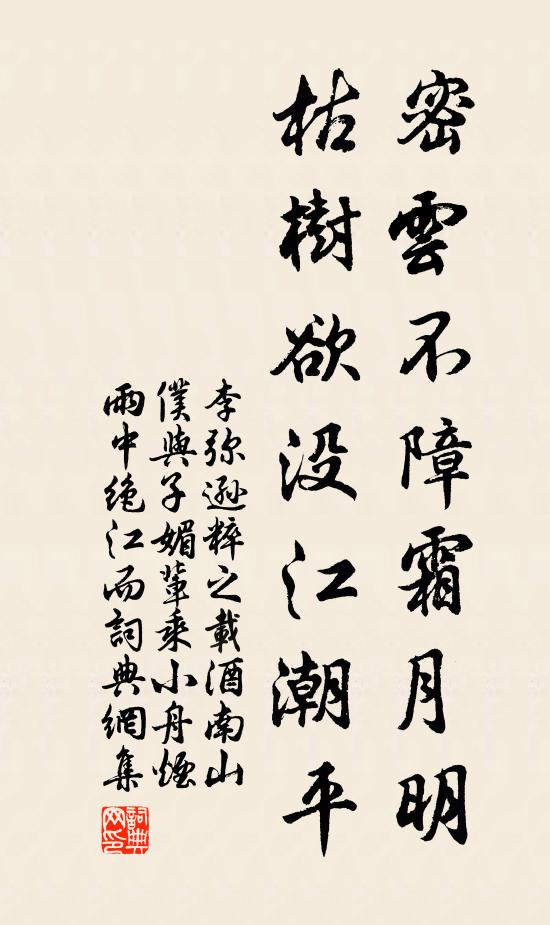 密雲不障霜月明
枯樹欲没江潮平
李弥遜粹之載酒南山
僕與子媚輩乘小舟煙
雨中绝江而詞典網集
詞典網印